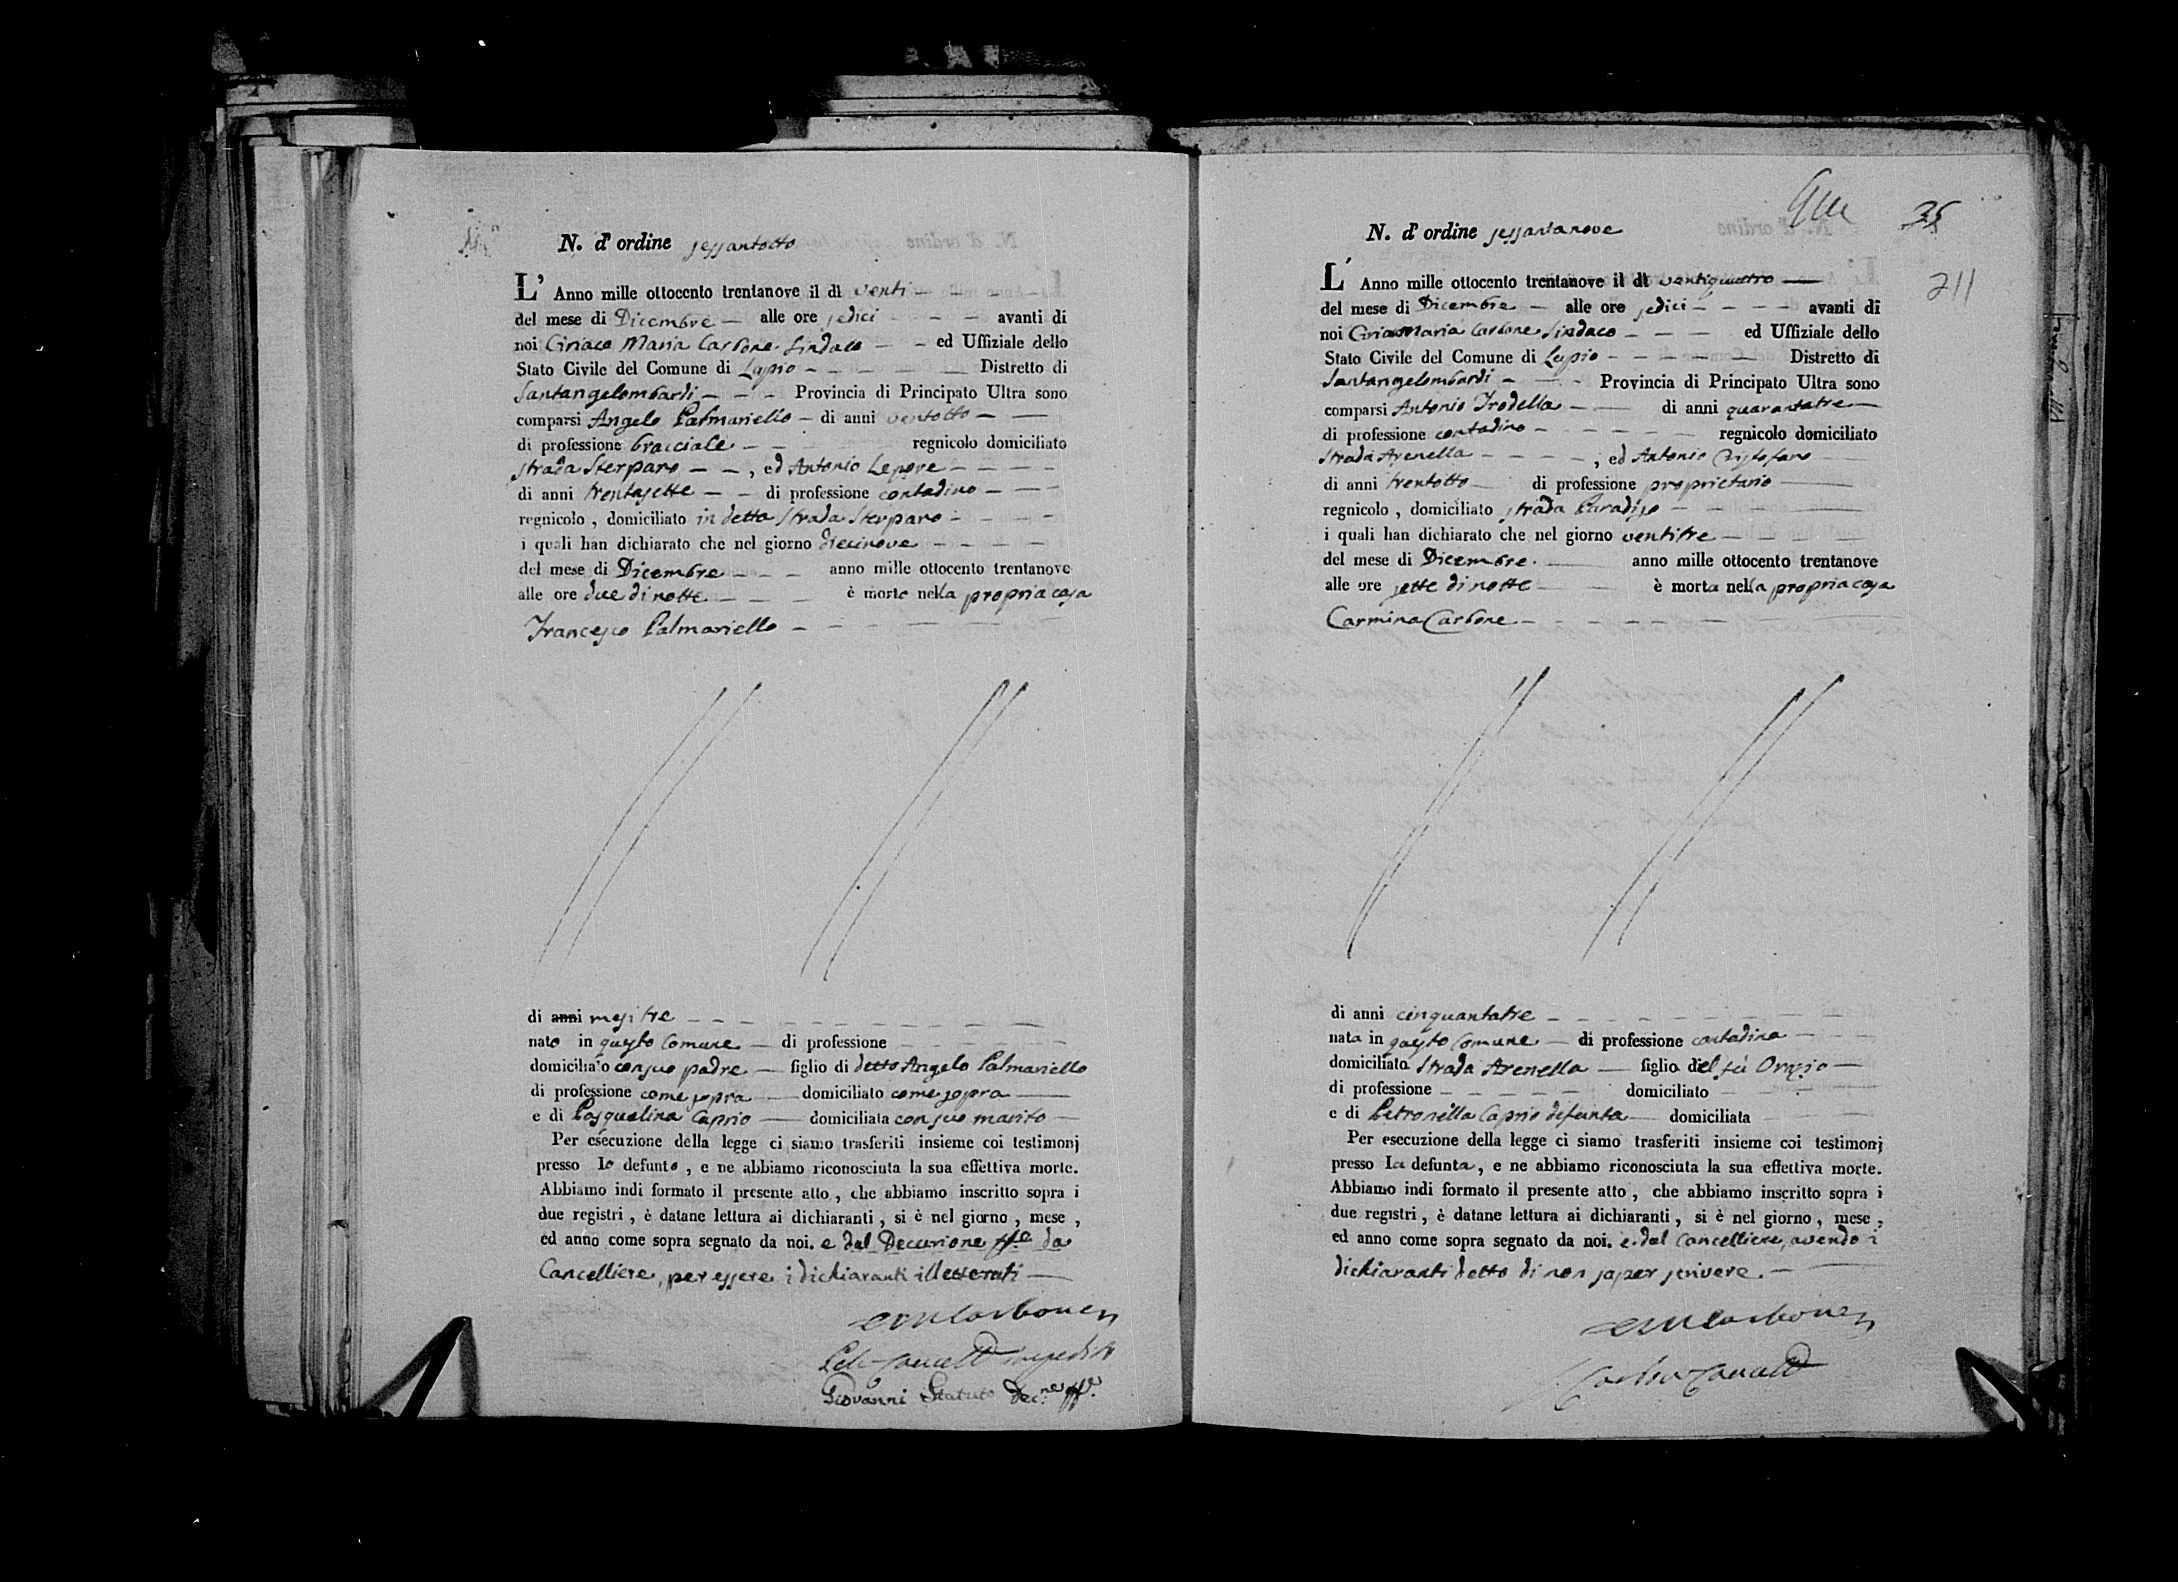 N. d'ordine sessantotto
L' Anno mille ottocento trentanove il dì venti
del mese di Dicembre alle ore sedici avanti di
noi Ciriaco Maria Carbone Sindaco ed Uffiziale dello
Stato Civile del Comune di Lapio Distretto di
Santangelombardi Provincia di Principato Ultra sono
comparsi Angelo Palmariello di anni ventotto
di professione bracciale regnicolo domiciliato
strada Sterparo , ed Antonio Lepore
di anni trentasette di professione contadino
regnicolo , domiciliato in detta strada Sterparo
i quali han dichiarato che nel giorno diecinove
del mese di Dicembre anno mille ottocento trentanove
alle ore due di notte è morto nella propria casa
Francesco Palmariello
di anni mesi tre
nato in questo Comune di professione
domiciliato con suo padre figlio di detto Angelo Palmariello
di professione come sopra domiciliato come sopra
e di Pasqualina Caprio domiciliata con suo marito
Per esecuzione della legge ci siamo trasferiti insieme coi testimonj
presso lo defunto , e ne abbiamo riconosciuta la sua effettiva morte.
Abbiamo indi formato il presente atto , che abbiamo inscritto sopra i
due registri , è datane lettura ai dichiaranti , si è nel giorno , mese ,
ed anno come sopra segnato da noi. e dal Decurione ff.e da
Cancelliere, per essere i dichiaranti illetterati
CM Carbone
impedito
Giovanni Statuto Dec.ne ff.e
35
211
N. d'ordine sessantanove
L' Anno mille ottocento trentanove il dì ventiquattro
del mese di Dicembre alle ore sedici avanti di
noi Ciriaco Maria Carbone Sindaco ed Uffiziale dello
Stato Civile del Comune di Lapio Distretto di
Santangelombardi Provincia di Principato Ultra sono
comparsi Antonio Trodella di anni quarantatre
di professione contadino regnicolo domiciliato
strada Arenella , ed Antonio Cristofaro
di anni trentotto di professione proprietario
regnicolo , domiciliato strada Paradiso
i quali han dichiarato che nel giorno ventitre
del mese di Dicembre anno mille ottocento trentanove
alle ore sette di notte è morta nella propria casa
Carmina Carbone
di anni cinquantatre
nata in questo Comune di professione contadina
domiciliata strada Arenella figlia del fù Orazio
di professione domiciliato
e di Petronilla Caprio defunta domiciliata
Per esecuzione della legge ci siamo trasferiti insieme coi testimonj
presso la defunta , e ne abbiamo riconosciuta la sua effettiva morte.
Abbiamo indi formato il presente atto , che abbiamo inscritto sopra i
due registri , è datane lettura ai dichiaranti , si è nel giorno , mese ,
ed anno come sopra segnato da noi. e dal Cancelliere, avendo i
dichiaranti detto di non saper scrivere.
CM Carbone